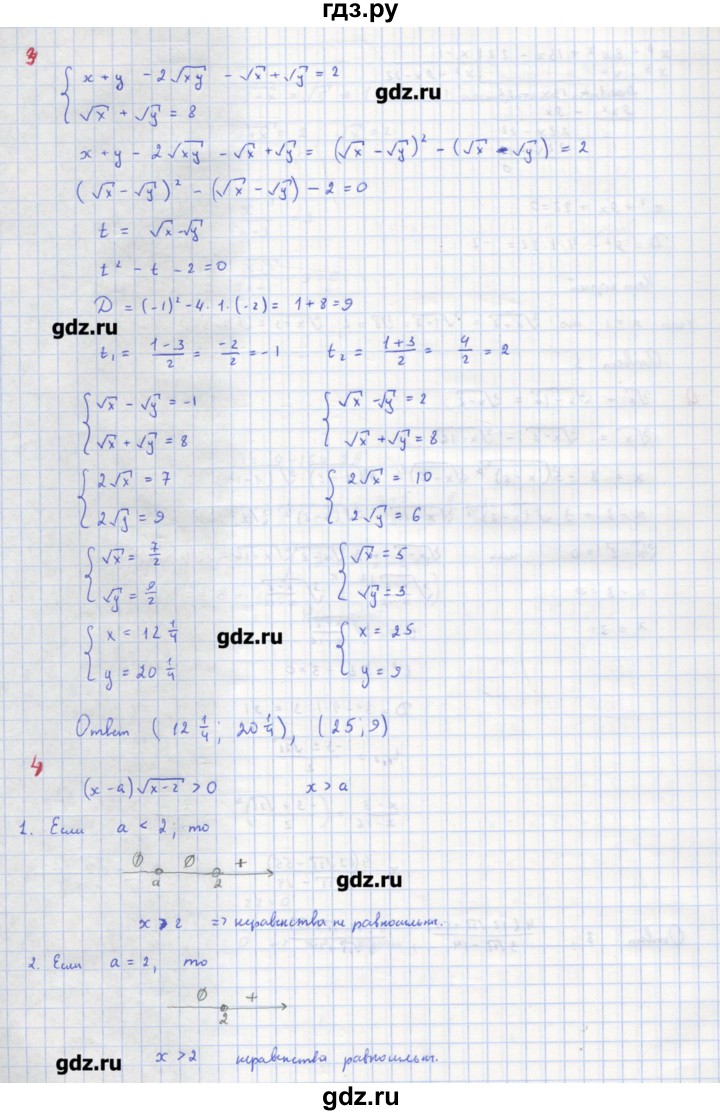 гдз.ру
3
{ x + y - 2√xy - √x + √y = 2
gdz.ru
√x + √y = 8
x + y - 2√xy - √x + √y = (√x - √y)² - (√x - √y) = 2
(√x - √y)² - (√x - √y) - 2 = 0
t = √x - √y
t² - t - 2 = 0
D = (-1)² - 4 · 1 · (-2) = 1 + 8 = 9
gdz.ru
t₁ = (1-3)/2 = -2/2 = -1    t₂ = (1+3)/2 = 4/2 = 2
{ √x - √y = -1    { √x - √y = 2
√x + √y = 8    √x + √y = 8
{ 2√x = 7    { 2√x = 10
2√y = 9    2√y = 6
{ √x = 7/2    { √x = 5
√y = 9/2    √y = 3
{ x = 12 1/4    gdz.ru    { x = 25
y = 20 1/4    y = 9
Ответ (12 1/4; 20 1/4), (25; 9)
4
(x-a)√x-2 > 0    x > a
1. Если a < 2; то
∅ ∅ +
a 2
gdz.ru
x > 2 => неравенства не равносильны.
2. Если a = 2, то
∅ +
2
gdz.ru    x > 2    неравенства равносильны.
gdz.ru